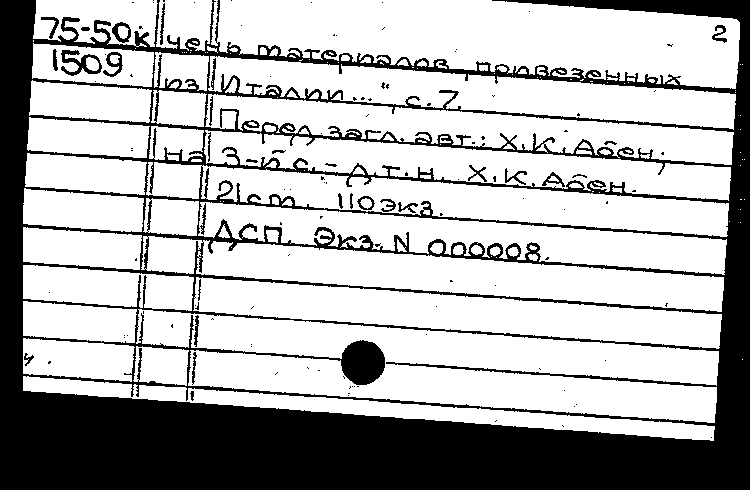 2
75-50к чень материалов, привезенных
1509 из Италии...", с. 7.
Перед загл. авт.: Х.К. Абен;
на 3-й с. - д.т.н. Х.К. Абен.
21 cm. 110 экз.
ДСП. Экз. N 000008.
ч.